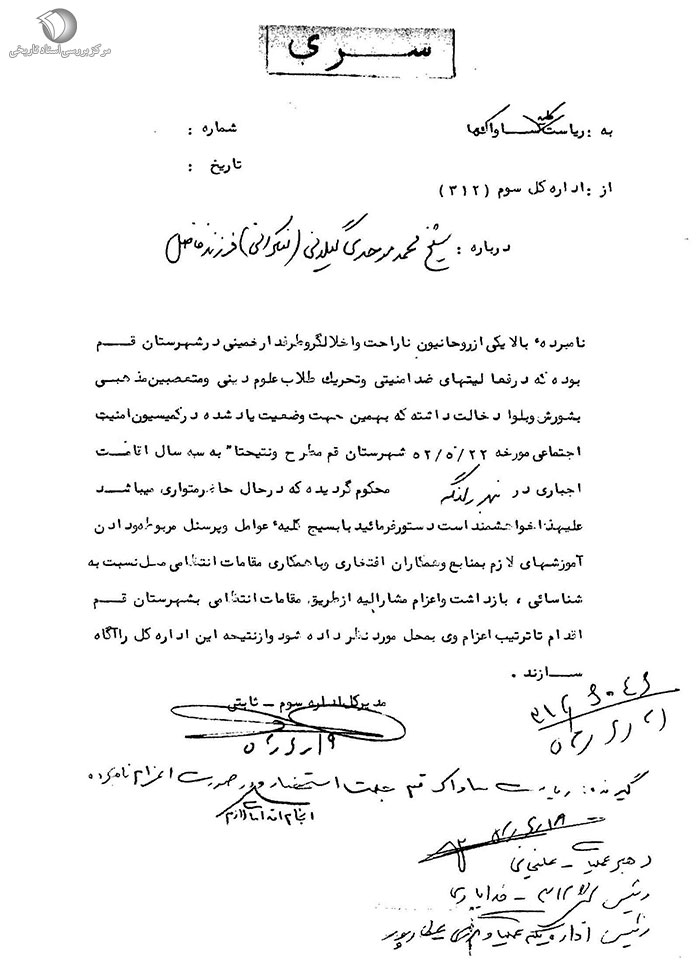 مرکز بررسی اسناد تاریخی
سری
به : ریاست کلیه ساواکها
شماره :
تاریخ :
از : اداره کل سوم (۳۱۲)
درباره : شیخ محمد موحدی گیلانی (لنکرانی) فرزند فاضل
نامبرده بالا یکی از روحانیون ناراحت و اخلالگر و طرفدار خمینی در شهرستان قم
بوده که در فعالیتهای ضد امنیتی وتحریک طلاب علوم دینی ومتعصبین مذهبی
بشورش وبلوا دخالت داشته که بهمین جهت وضعیت یاد شده در کمیسیون امنیت
اجتماعی مورخه ۵۲/۵/۲۲ شهرستان قم مطرح ونتیجتا" به سه سال اقامت
اجباری در محکوم گردیده که در حال حاضر متواری میباشد
علیهذا خواهشمند است دستور فرمائید با بسیج کلیه عوامل وپرسنل مربوطه ودادن
آموزشهای لازم بمنابع وهمکاران افتخاری وبا همکاری مقامات انتظامی محل نسبت به
شناسائی ، بازداشت واعزام مشارالیه از طریق مقامات انتظامی بشهرستان قم
اقدام تا ترتیب اعزام وی بمحل مورد نظر داده شود واز نتیجه این اداره کل را آگاه
سازند .
مدیر کل اداره سوم - ثابتی
گیرنده : ریاست ساواک قم جهت استحضار و در صورت اعزام نامبرده
انجام اقدامات لازم
رهبر عملیات -
رئیس
رئیس اداره یکم عملیات و